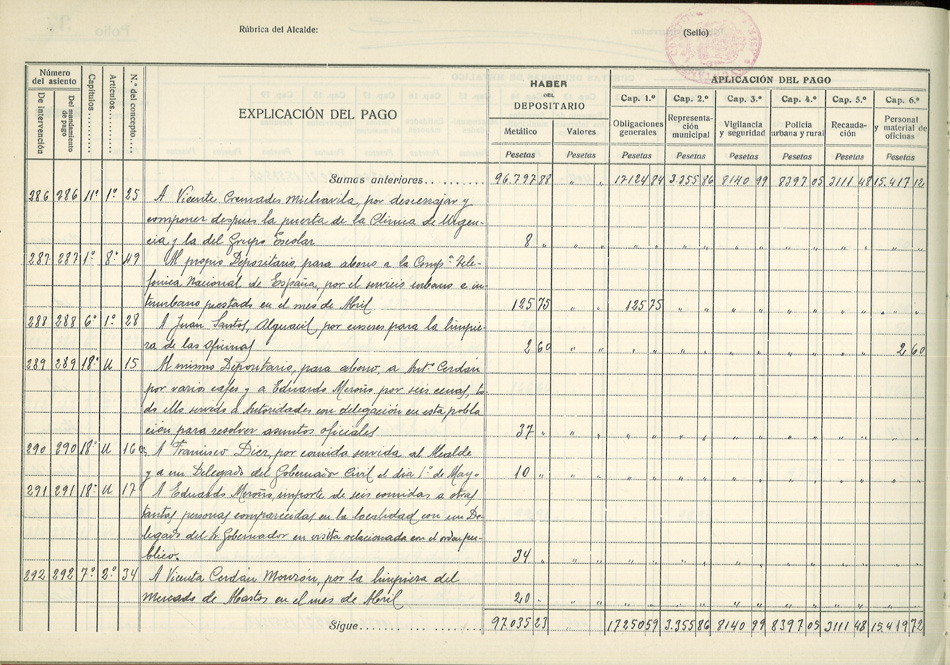 Rúbrica del Alcalde:
(Sello)
Número del asiento
De intervención
Del mandamiento de pago
Capítulos
Artículos
N.º del concepto
EXPLICACIÓN DEL PAGO
HABER DEL DEPOSITARIO
Metálico Valores
Pesetas Pesetas
APLICACIÓN DEL PAGO
Cap. 1.º Cap. 2.º Cap. 3.º Cap. 4.º Cap. 5.º Cap. 6.º
Obligaciones generales Representación municipal Vigilancia y seguridad Policía urbana y rural Recaudación Personal y material de oficinas
Pesetas Pesetas Pesetas Pesetas Pesetas Pesetas
Sumas anteriores 96.797 88 " " 17124 84 3.355 86 8140 99 8397 05 3111 48 15.417 12
286 286 11º 1º 25 A Vicente Cremades Michavila, por descerrajar y
componer despues la puerta de la Clínica de Urgen-
cia y la del Grupo Escolar 8 "
287 287 1º 8º 49 Al propio Depositario, para abono a la Compª Tele-
fónica Nacional de España, por el servicio urbano e in
terurbano prestado en el mes de Abril 125 75 " " 125 75
288 288 6º 1º 28 A Juan Santos, Alguacil, por enseres para la limpie-
ra de las oficinas 2 60 2 60
289 289 18º U 15 Al mismo Depositario, para abono, a Antº Cerdán
por varios cafes y a Eduardo Meroño por seis cenas, to
do ello servido a Autoridades con delegación en esta pobla
ción para resolver asuntos oficiales 37 "
290 290 18º U 16 A Francisco Diez, por comida servida al Alcalde
y a un Delegado del Gobernador Civil el dia 1º de Mayo 10 "
291 291 18º U 17 A Eduardo Meroño, importe de seis comidas a otras
tantas personas comparecidas en la localidad con un De-
legado del Sr Gobernador en visita relacionada con el orden pu-
blico. 34 "
292 292 7º 2º 34 A Vicenta Cerdán Monzón, por la limpieza del
Mercado de Abastos en el mes de Abril 20 "
Sigue 97035 23 17250 59 3.355 86 8140 99 8397 05 3111 48 15.419 72